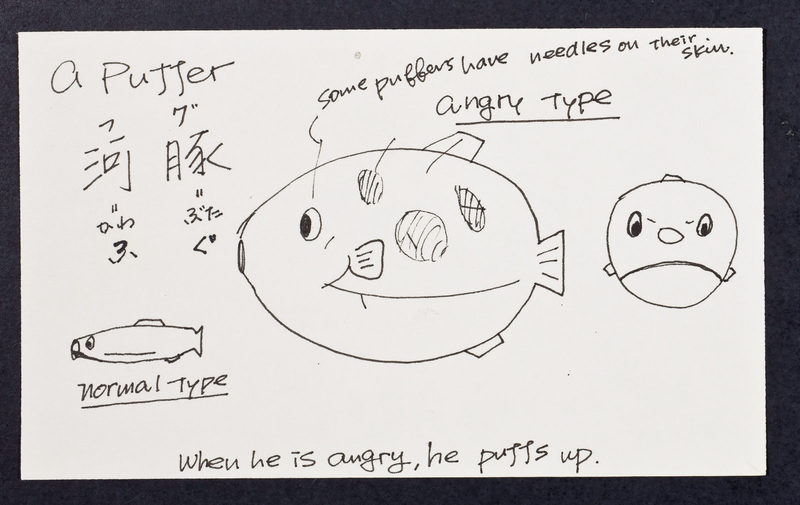 a Puffer
フグ
河豚
がわ ぶた
ふぐ
some puffers have needles on their
skin.
angry type
normal type
When he is angry, he puffs up.